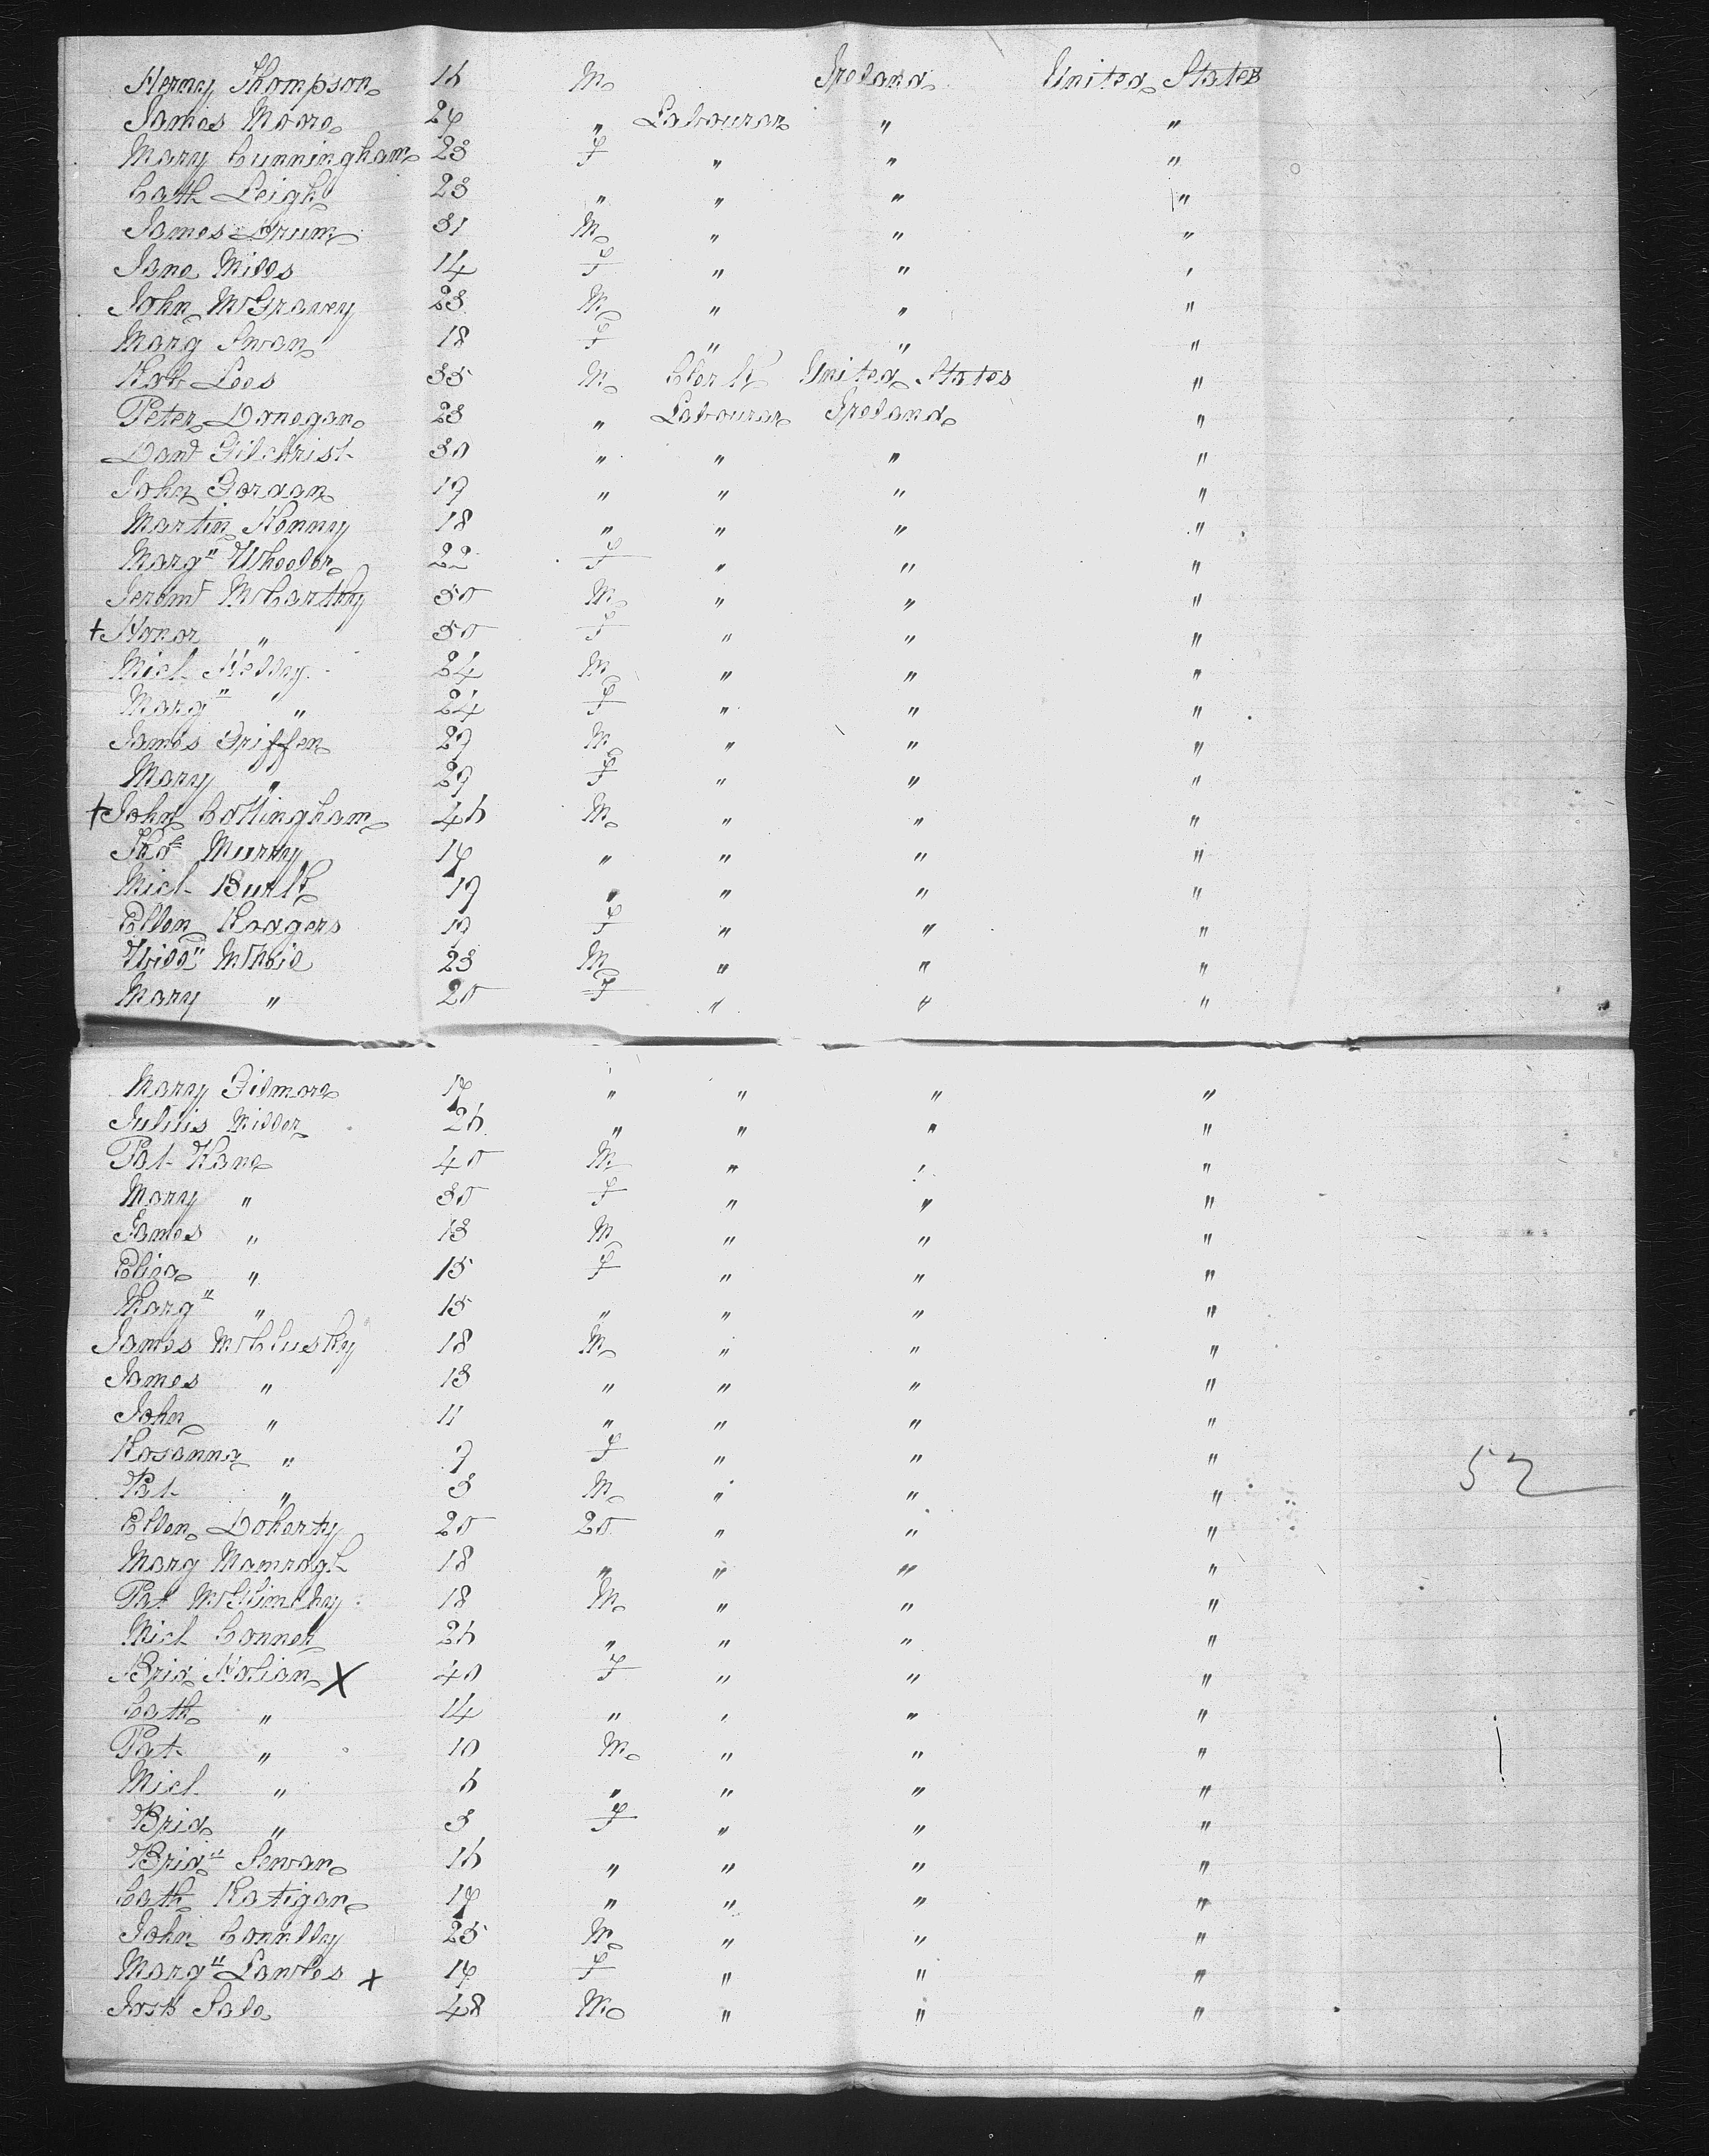 Henry Thompson 16 M Ireland United States
James Moore 27 " Labourer " "
Mary Cunningham 23 F " " "
Cath Leigh 23 " " " "
James Drum 31 M " " "
Jane Mills 14 F " " "
John McGravey 23 M " " "
Marg Swan 18 F " " "
Rob Lees 35 M Clerk United States "
Peter Donegan 23 " Labourer Ireland "
Dan<sup>d</sup> Gilchrist 30 " " " "
John Gordon 19 " " " "
Martin Kenny 18 " " " "
Marg" Wheeler 22 F " " "
Jerem<sup>h</sup> McCarthy 50 M " " "
+ Honor " 50 F " " "
Micl Kelley 24 M " " "
Marg" " 24 F " " "
James Griffen 29 M " " "
Mary " 29 F " " "
+ John Cottingham 46 M " " "
Tho<sup>s</sup> Murray 17 " " " "
Micl Burk 19 " " " "
Ellen Rodgers 19 F " " "
Will" McNeil 23 M " " "
Mary " 20 F " " "
Mary Gilmore 17 " " " "
Julius Miller 26 " " " "
Pat Kane 40 M " " "
Mary " 30 F " " "
James " 13 M " " "
Eliza " 15 F " " "
Marg" " 15 " " " "
James McClusky 18 M " " "
James " 13 " " " "
John " 11 " " " "
Rosanna " 9 F " " "
Pat " 3 M " " "
52
Ellen Doherty 20 20 " " "
Marg 18 " " " "
Pat McGlinchy 18 M " " "
Micl Conner 26 " " " "
Brid Nolian X 40 F " " "
Cath " 14 " " " "
Pat " 10 M " " "
Micl " 6 " " " "
Brid " 3 F " " "
Brid" Sewan 16 " " " "
Cath Ratigan 17 " " " "
John Connelly 25 M " " "
Marg" Lawles x 17 F " " "
Josh Sale 48 M " " "